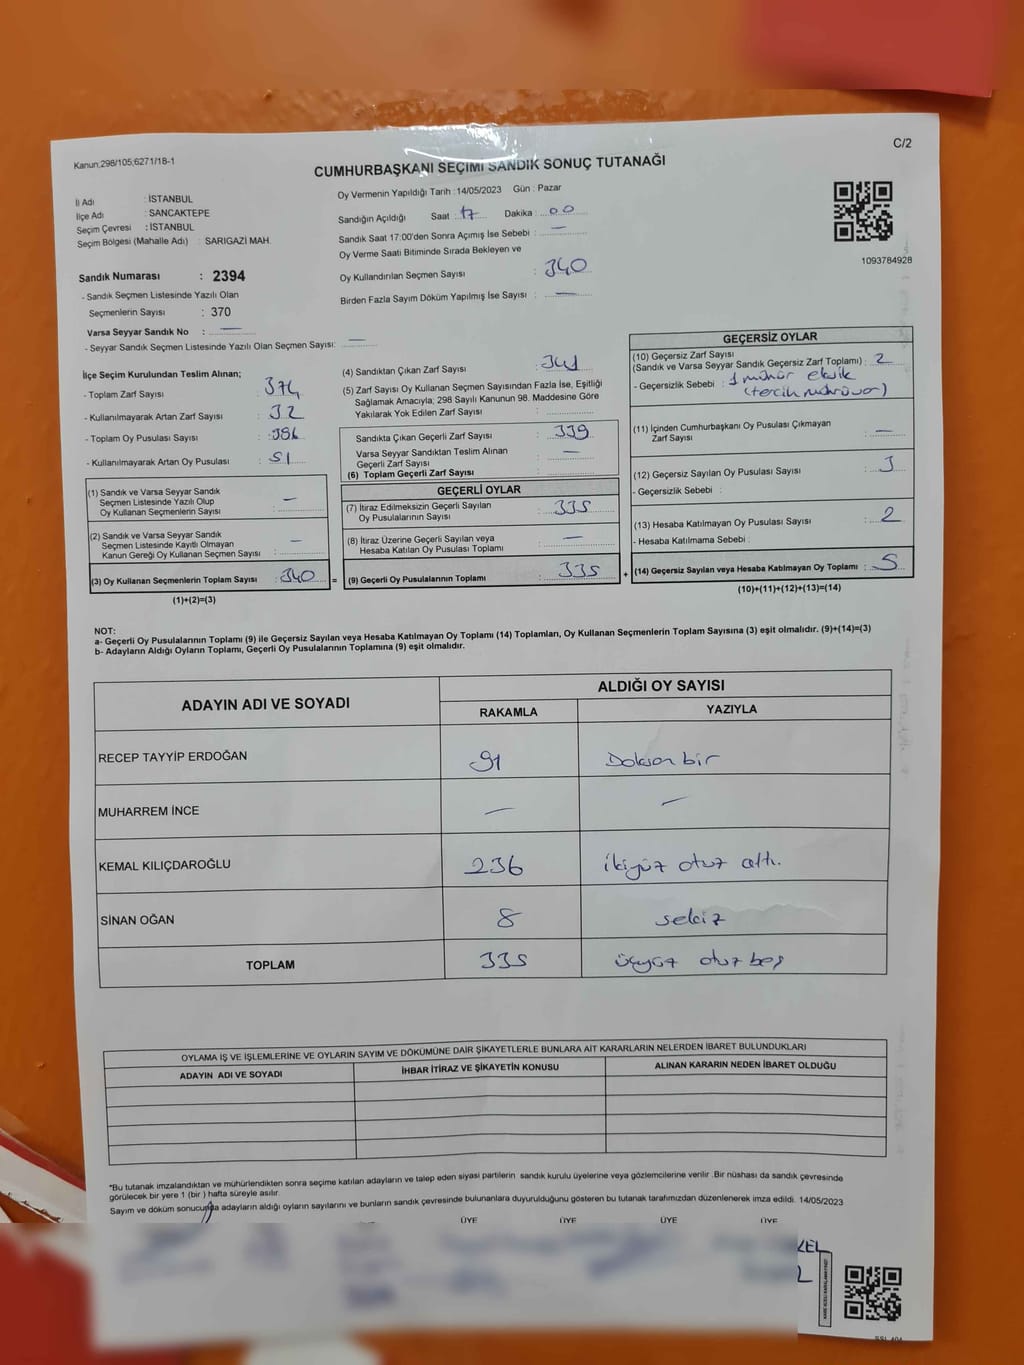 Kanun:298/105,6271/18-1
C/2
CUMHURBAŞKANI SEÇİMİ SANDIK SONUÇ TUTANAĞI
İl Adı : İSTANBUL
İlçe Adı : SANCAKTEPE
Seçim Çevresi : İSTANBUL
Seçim Bölgesi (Mahalle Adı) : SARIGAZİ MAH.
Sandık Numarası : 2394
- Sandık Seçmen Listesinde Yazılı Olan
Seçmenlerin Sayısı : 370
Varsa Seyyar Sandık No : —
- Seyyar Sandık Seçmen Listesinde Yazılı Olan Seçmen Sayısı: —
Oy Vermenin Yapıldığı Tarih :14/05/2023 Gün : Pazar
Sandığın Açıldığı Saat : 17 Dakika : 00
Sandık Saat 17:00'den Sonra Açımış İse Sebebi : —
Oy Verme Saati Bitiminde Sırada Bekleyen ve
Oy Kullandırılan Seçmen Sayısı : 340
Birden Fazla Sayım Döküm Yapılmış İse Sayısı : —
1093784928
İlçe Seçim Kurulundan Teslim Alınan;
- Toplam Zarf Sayısı : 374
- Kullanılmayarak Artan Zarf Sayısı : 32
- Toplam Oy Pusulası Sayısı :
- Kullanılmayarak Artan Oy Pusulası : 51
(1) Sandık ve Varsa Seyyar Sandık
Seçmen Listesinde Yazılı Olup
Oy Kullanan Seçmenlerin Sayısı : —
(2) Sandık ve Varsa Seyyar Sandık
Seçmen Listesinde Kayıtlı Olmayan
Kanun Gereği Oy Kullanan Seçmen Sayısı : —
(3) Oy Kullanan Seçmenlerin Toplam Sayısı : 340 =
(1)+(2)=(3)
(4) Sandıktan Çıkan Zarf Sayısı : 341
(5) Zarf Sayısı Oy Kullanan Seçmen Sayısından Fazla İse, Eşitliği
Sağlamak Amacıyla; 298 Sayılı Kanunun 98. Maddesine Göre
Yakılarak Yok Edilen Zarf Sayısı :
Sandıkta Çıkan Geçerli Zarf Sayısı : 339
Varsa Seyyar Sandıktan Teslim Alınan
Geçerli Zarf Sayısı : —
(6) Toplam Geçerli Zarf Sayısı :
GEÇERLİ OYLAR
(7) İtiraz Edilmeksizin Geçerli Sayılan
Oy Pusulalarının Sayısı : 335
(8) İtiraz Üzerine Geçerli Sayılan veya
Hesaba Katılan Oy Pusulası Toplamı : —
(9) Geçerli Oy Pusulalarının Toplamı : 335 +
GEÇERSİZ OYLAR
(10) Geçersiz Zarf Sayısı
(Sandık ve Varsa Seyyar Sandık Geçersiz Zarf Toplamı) : 2
- Geçersizlik Sebebi : 1 mühür eksik
(tercih mührü var)
(11) İçinden Cumhurbaşkanı Oy Pusulası Çıkmayan
Zarf Sayısı : —
(12) Geçersiz Sayılan Oy Pusulası Sayısı :
- Geçersizlik Sebebi :
(13) Hesaba Katılmayan Oy Pusulası Sayısı : 2
- Hesaba Katılmama Sebebi :
(14) Geçersiz Sayılan veya Hesaba Katılmayan Oy Toplamı : 5
(10)+(11)+(12)+(13)=(14)
NOT:
a- Geçerli Oy Pusulalarının Toplamı (9) ile Geçersiz Sayılan veya Hesaba Katılmayan Oy Toplamı (14) Toplamları, Oy Kullanan Seçmenlerin Toplam Sayısına (3) eşit olmalıdır. (9)+(14)=(3)
b- Adayların Aldığı Oyların Toplamı, Geçerli Oy Pusulalarının Toplamına (9) eşit olmalıdır.
ADAYIN ADI VE SOYADI ALDIĞI OY SAYISI
RAKAMLA YAZIYLA
RECEP TAYYİP ERDOĞAN 91 Doksan bir
MUHARREM İNCE — —
KEMAL KILIÇDAROĞLU 236 ikiyüz otuz altı.
SİNAN OĞAN 8 sekiz
TOPLAM 335 üçyüz otuz beş
OYLAMA İŞ VE İŞLEMLERİNE VE OYLARIN SAYIM VE DÖKÜMÜNE DAİR ŞİKAYETLERLE BUNLARA AİT KARARLARIN NELERDEN İBARET BULUNDUKLARI
ADAYIN ADI VE SOYADI İHBAR İTİRAZ VE ŞİKAYETİN KONUSU ALINAN KARARIN NEDEN İBARET OLDUĞU
*Bu tutanak imzalandıktan ve mühürlendikten sonra seçime katılan adayların ve talep eden siyasi partilerin sandık kurulu üyelerine veya gözlemcilerine verilir .Bir nüshası da sandık çevresinde
görülecek bir yere 1 (bir ) hafta süreyle asılır.
Sayım ve döküm sonucunda adayların aldığı oyların sayılarını ve bunların sandık çevresinde bulunanlara duyurulduğunu gösteren bu tutanak tarafımızdan düzenlenerek imza edildi. 14/05/2023
ÜYE ÜYE ÜYE ÜYE